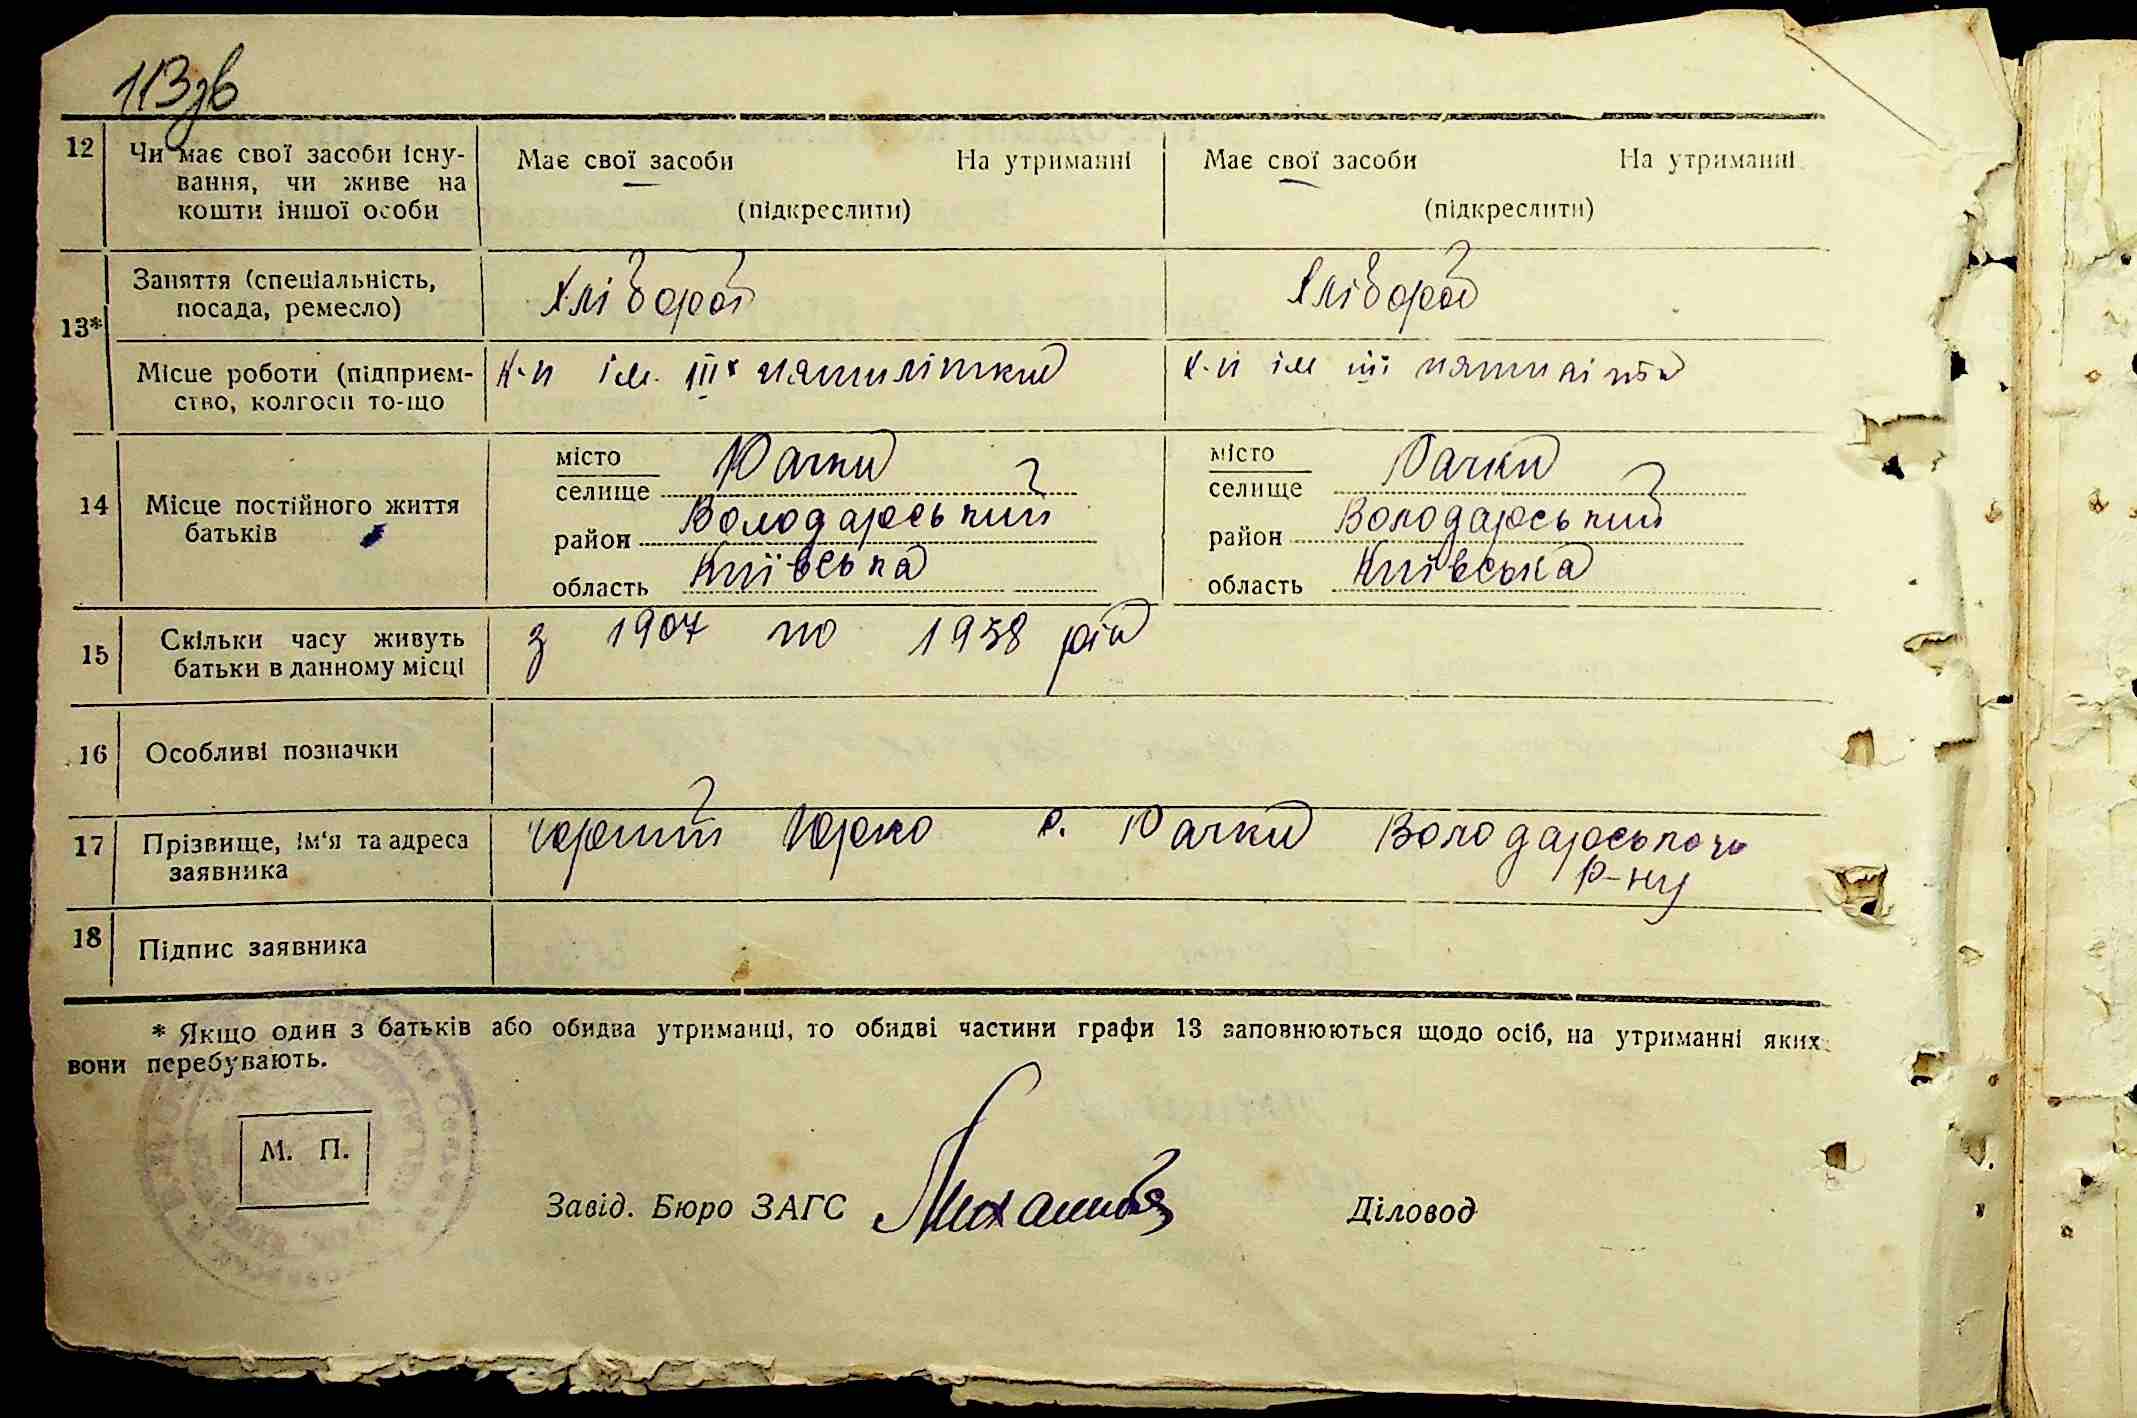 113зв
12 Чи має свої засоби існу- Має свої засоби На утриманні Має свої засоби На утриманні
вання, чи живе на
кошти іншої особи (підкреслити) (підкреслити)
13* Заняття (спеціальність, Хлібороб Хлібороб
посада, ремесло)
Місце роботи (підприєм- к-п ім. III¨ пятилітки к-п ім III пятилітки
ство, колгосп то-що
14 Місце постійного життя батьків
місто Рачки місто Рачки
селище селище
район Володарський район Володарський
область Київська область Київська
15 Скільки часу живуть з 1907 по 1938 рік
батьки в данному місці
16 Особливі позначки
17 Прізвище, ім'я та адреса Чорний Юрко с. Рачки Володарського
заявника р-ну
18 Підпис заявника
* Якщо один з батьків або обидва утриманці, то обидві частини графи 13 заповнюються щодо осіб, на утриманні яких
вони перебувають.
М. П.
Завід. Бюро ЗАГС Діловод